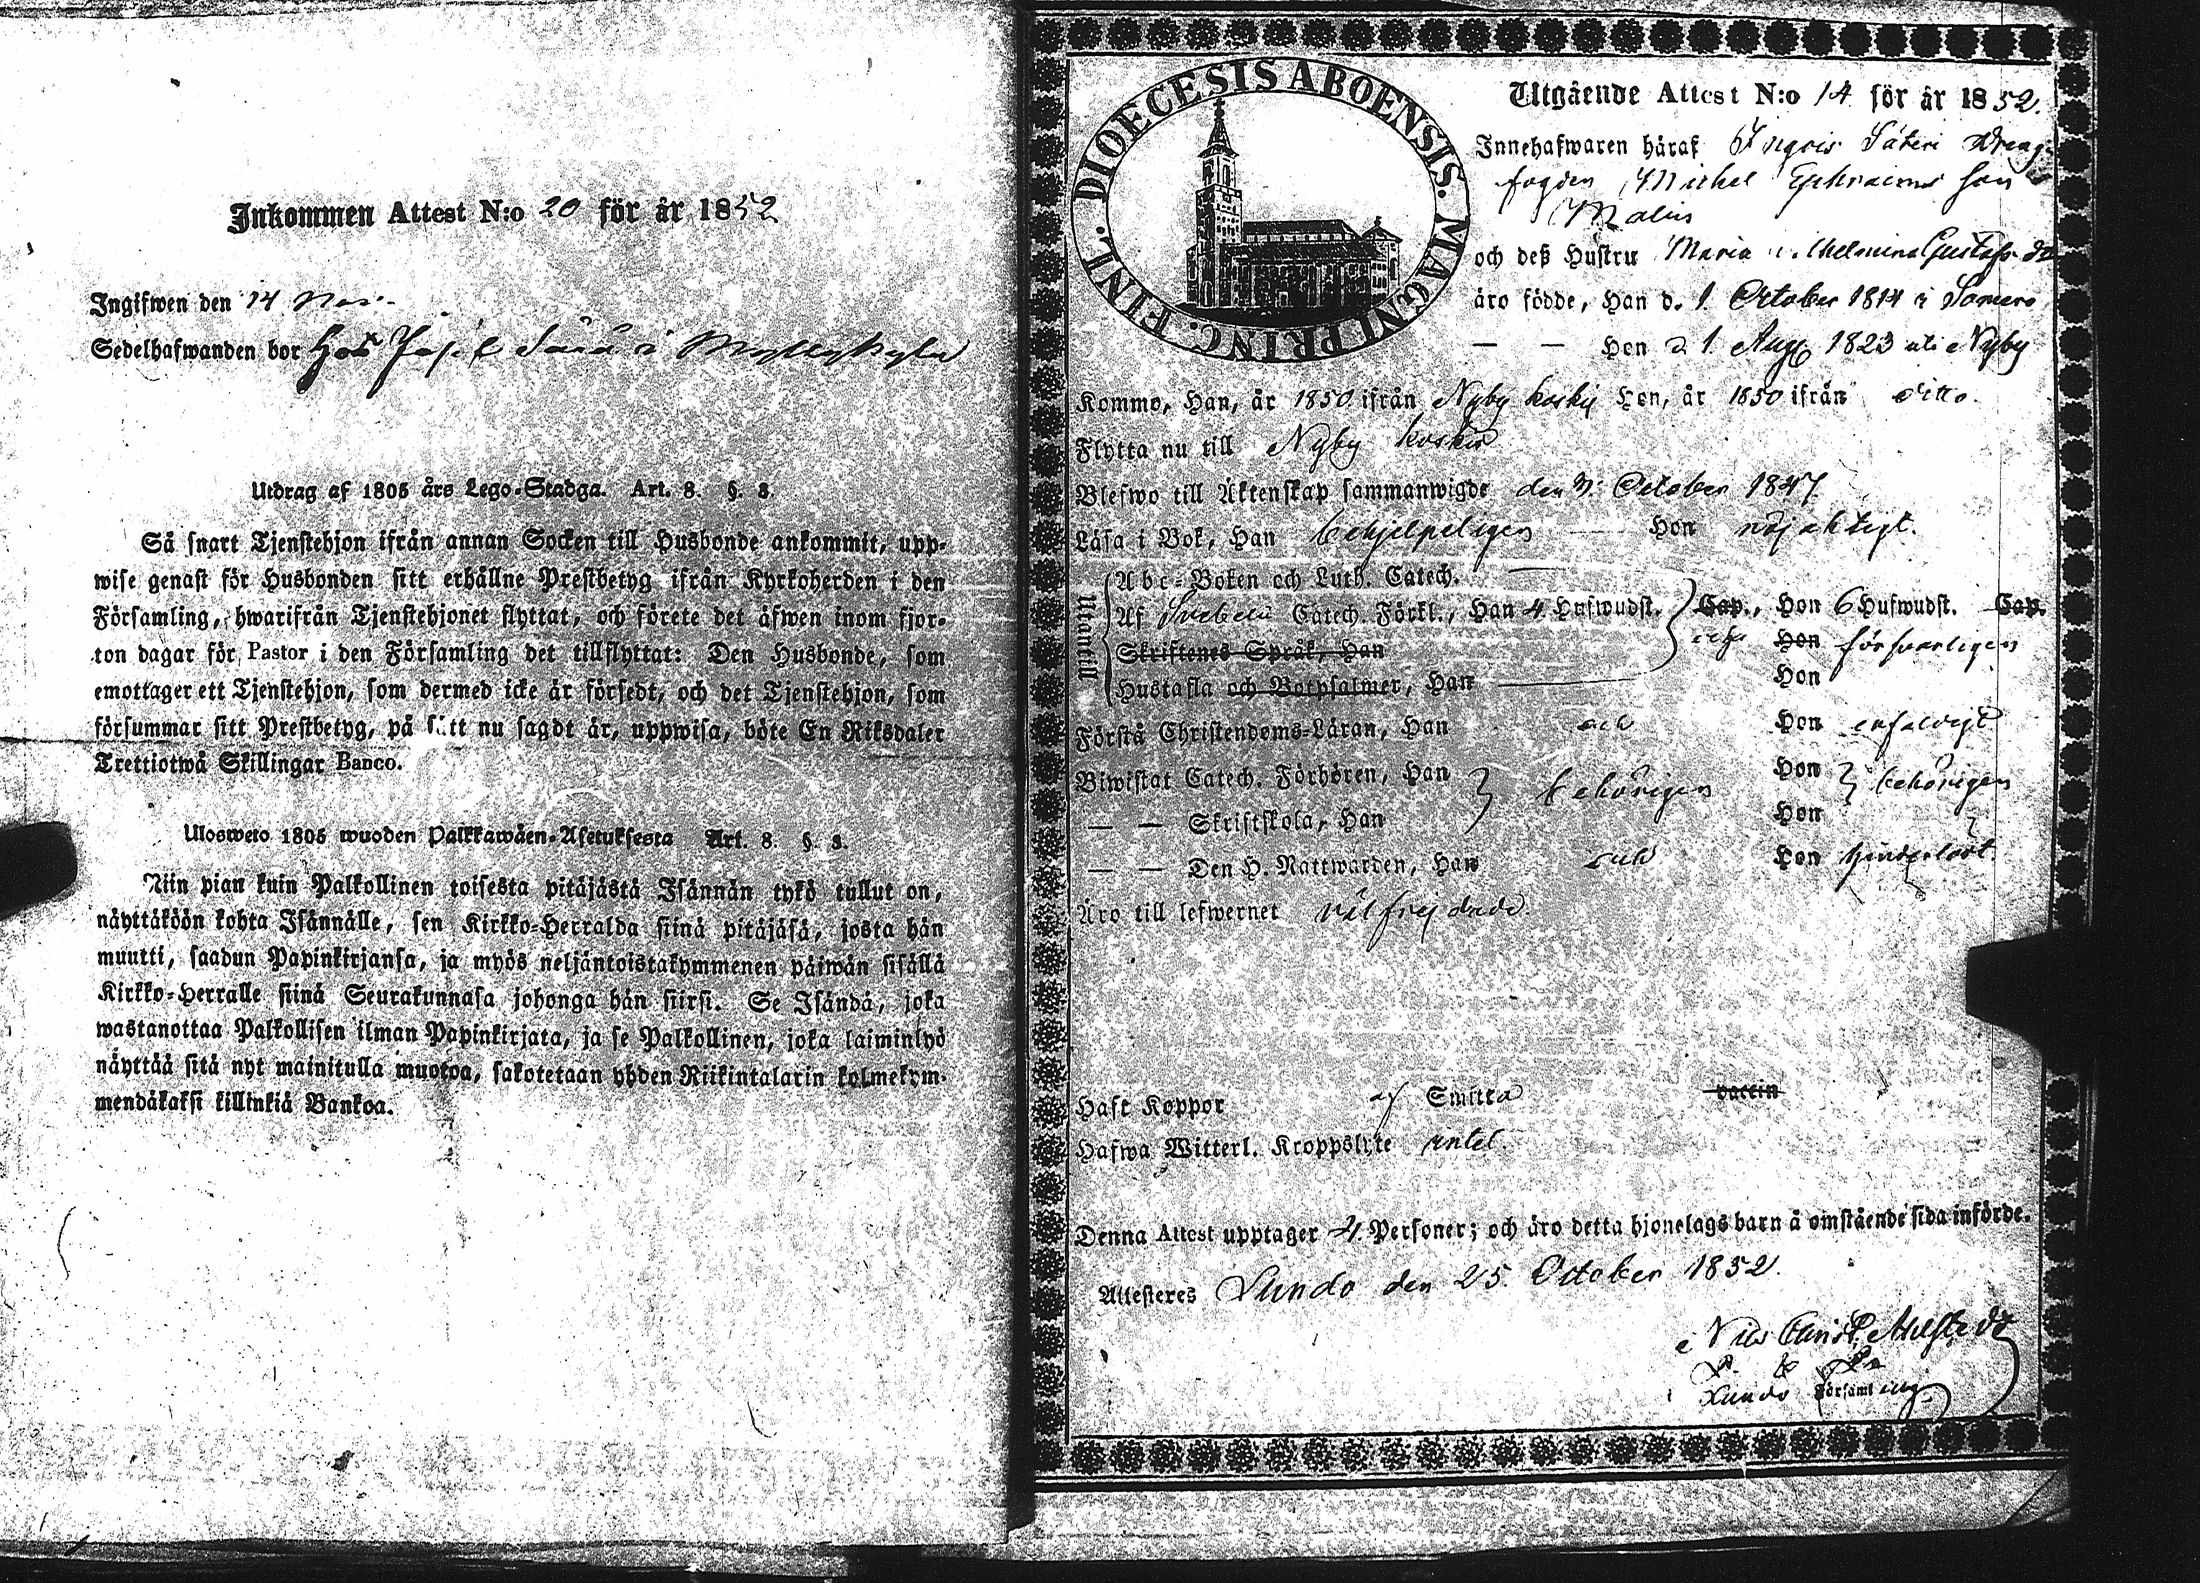 Inkommen Attest N:o 20 för år 1852
Ingifwen den 14 Nov.
Sedelhafwanden bor hos Josef i Myllykylä
Utdrag af 1805 års Lego-Stadga. Art. 8. §. 3.
Så snart Tjenstehjon ifrån annan Socken till Husbonde ankommit, upp-
wise genast för Husbonden sitt erhållne Prestbetyg ifrån Kyrkoherden i den
Församling, hwarifrån Tjenstehjonet flyttat, och förete det äfwen inom fjor-
ton dagar för Pastor i den Församling det tillflyttat: Den Husbonde, som
emottager ett Tjenstehjon, som dermed icke är försedt, och det Tjenstehjon, som
försummar sitt Prestbetyg, på sätt nu sagdt är, uppwisa, böte En Riksdaler
Trettiotwå Skillingar Banco.
Ulosweto 1805 wuoden Palkkawäen-Asetuksesta Art. 8. §. 3.
Niin pian kuin Palkollinen toisesta pitäjästä Isännän tykö tullut on,
näyttäköön kohta Isännälle, sen Kirkko-Herralda siinä pitäjäsä, josta hän
muutti, saadun Papinkirjansa, ja myös neljäntoistakymmenen päiwän sisällä
Kirkko-Herralle siinä Seurakunnasa johonga hän siirsi. Se Isändä, joka
wastanottaa Palkollisen ilman Papinkirjata, ja se Palkollinen, joka laiminlyö
näyttää sitä nyt mainitulla muotoa, sakotetaan yhden Riikintalarin kolmekym-
mendäkaksi killinkiä Bankoa.
DIOECESIS ABOENSIS. MAGNI PRINC. FINL.
Utgående Attest N:o 14 för år 1852.
Innehafwaren häraf Ingois Säteri Dreng-
fogden Michel Ephraims son
Malin
och deß Hustru Maria Wilhelmina Gustafs dr
äro födde, Han d. 1. October 1814 i Somero
— — Hon d. 1. Aug 1823 uti Nyby
Kommo, Han, år 1850 ifrån Nyby koski Hon, år 1850 ifrån ditto.
Flytta nu till Nyby koskis
Blefwo till Äktenskap sammanwigde den 31. October 1847.
Läsa i Bok, Han behjelpeligen — Hon nöjaktigt.
Utantill
Abc-Boken och Luth. Catech.
Af Svebelii Catech. Förkl., Han 4 Hufwudst. Cap., Hon 6 Hufwudst. Cap.
Skriftenes Språk, Han Hon försvarligen
Hustafla och Botpsalmer, Han Hon
Förstå Christendoms-Läran, Han och Hon enfaldigt
Biwistat Catech. Förhören, Han behörigen Hon behörigen
— — Skriftskola, Han Hon
— — Den H. Nattwarden, Han och Hon hinderlöst.
Äro till lefwernet välfrejdade.
Haft Koppor af Smitta vaccin
Hafwa Witterl. Kroppslyte intet.
Denna Attest upptager 4. Personer; och äro detta hjonelags barn å omstående sida införde.
Attesteras Lundo den 25. October 1852.
Nils Christ. Ahlstedt
i Lundo Församling.